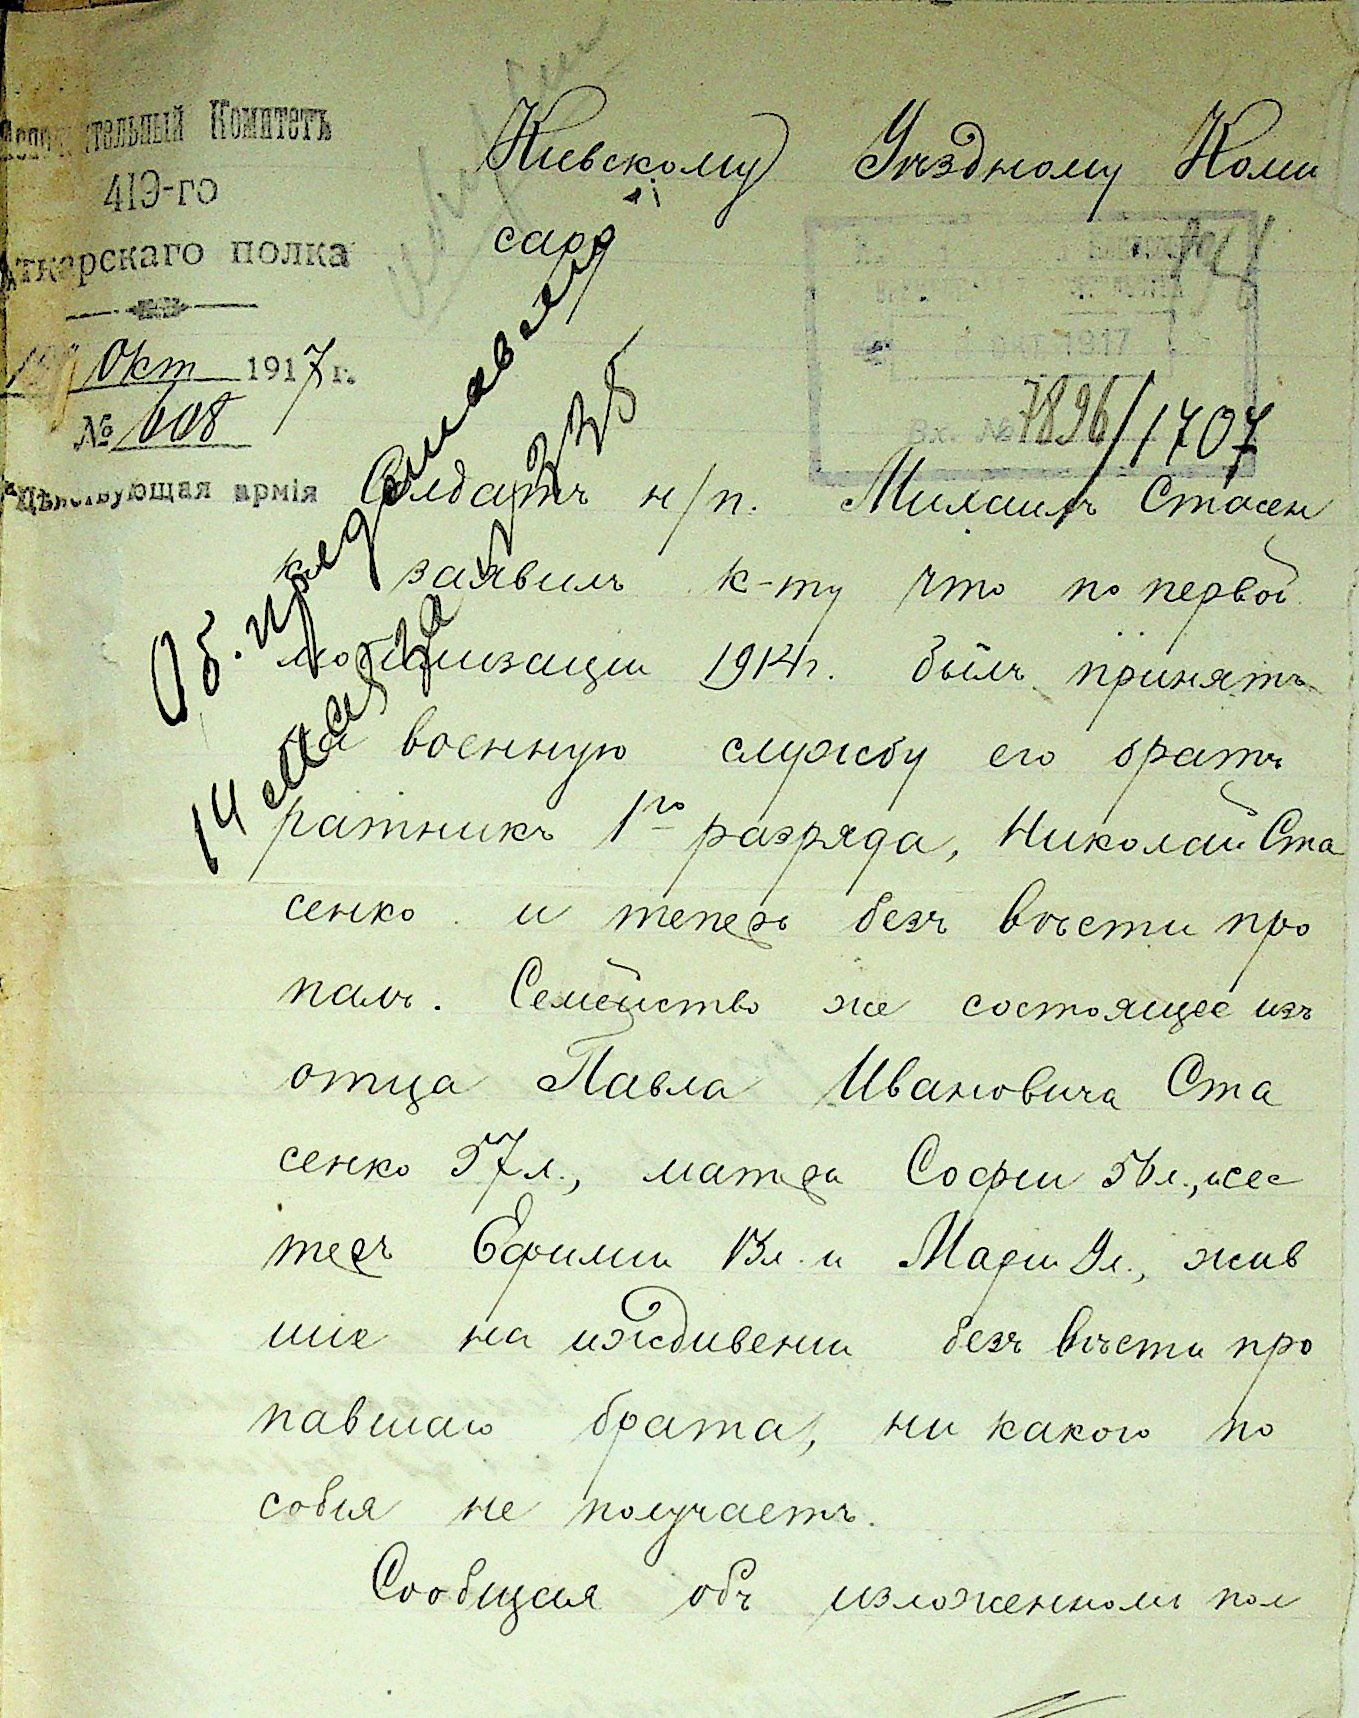 Исполнительный Комитетъ
419-го
Аткарскаго полка
Окт 1917 г.
№ 608
Дѣйствующая армія
Киевскому Уѣздному Коми
сару
ОКТ 1917
Вх. № 7896/1707
Об. предъявляя
14
Солдатъ н/п. Михаилъ Стасен
ко заявилъ к-ту что по первой
мобилизации 1914 г. былъ принятъ
на военную службу его братъ
ратникъ 1го разряда, Николай Ста
сенко и теперь безъ вѣсти про
палъ. Семейство же состоящее изъ
отца Павла Ивановича Ста
сенко 57 л., матери Софии 56 л., и сес
теръ Ефимии 13 л. и Марии 9 л., жив
шие на иждивении безъ вѣсти про
павшаго брата, ни какого по
собия не получаетъ.
Сообщая объ изложенномъ пол